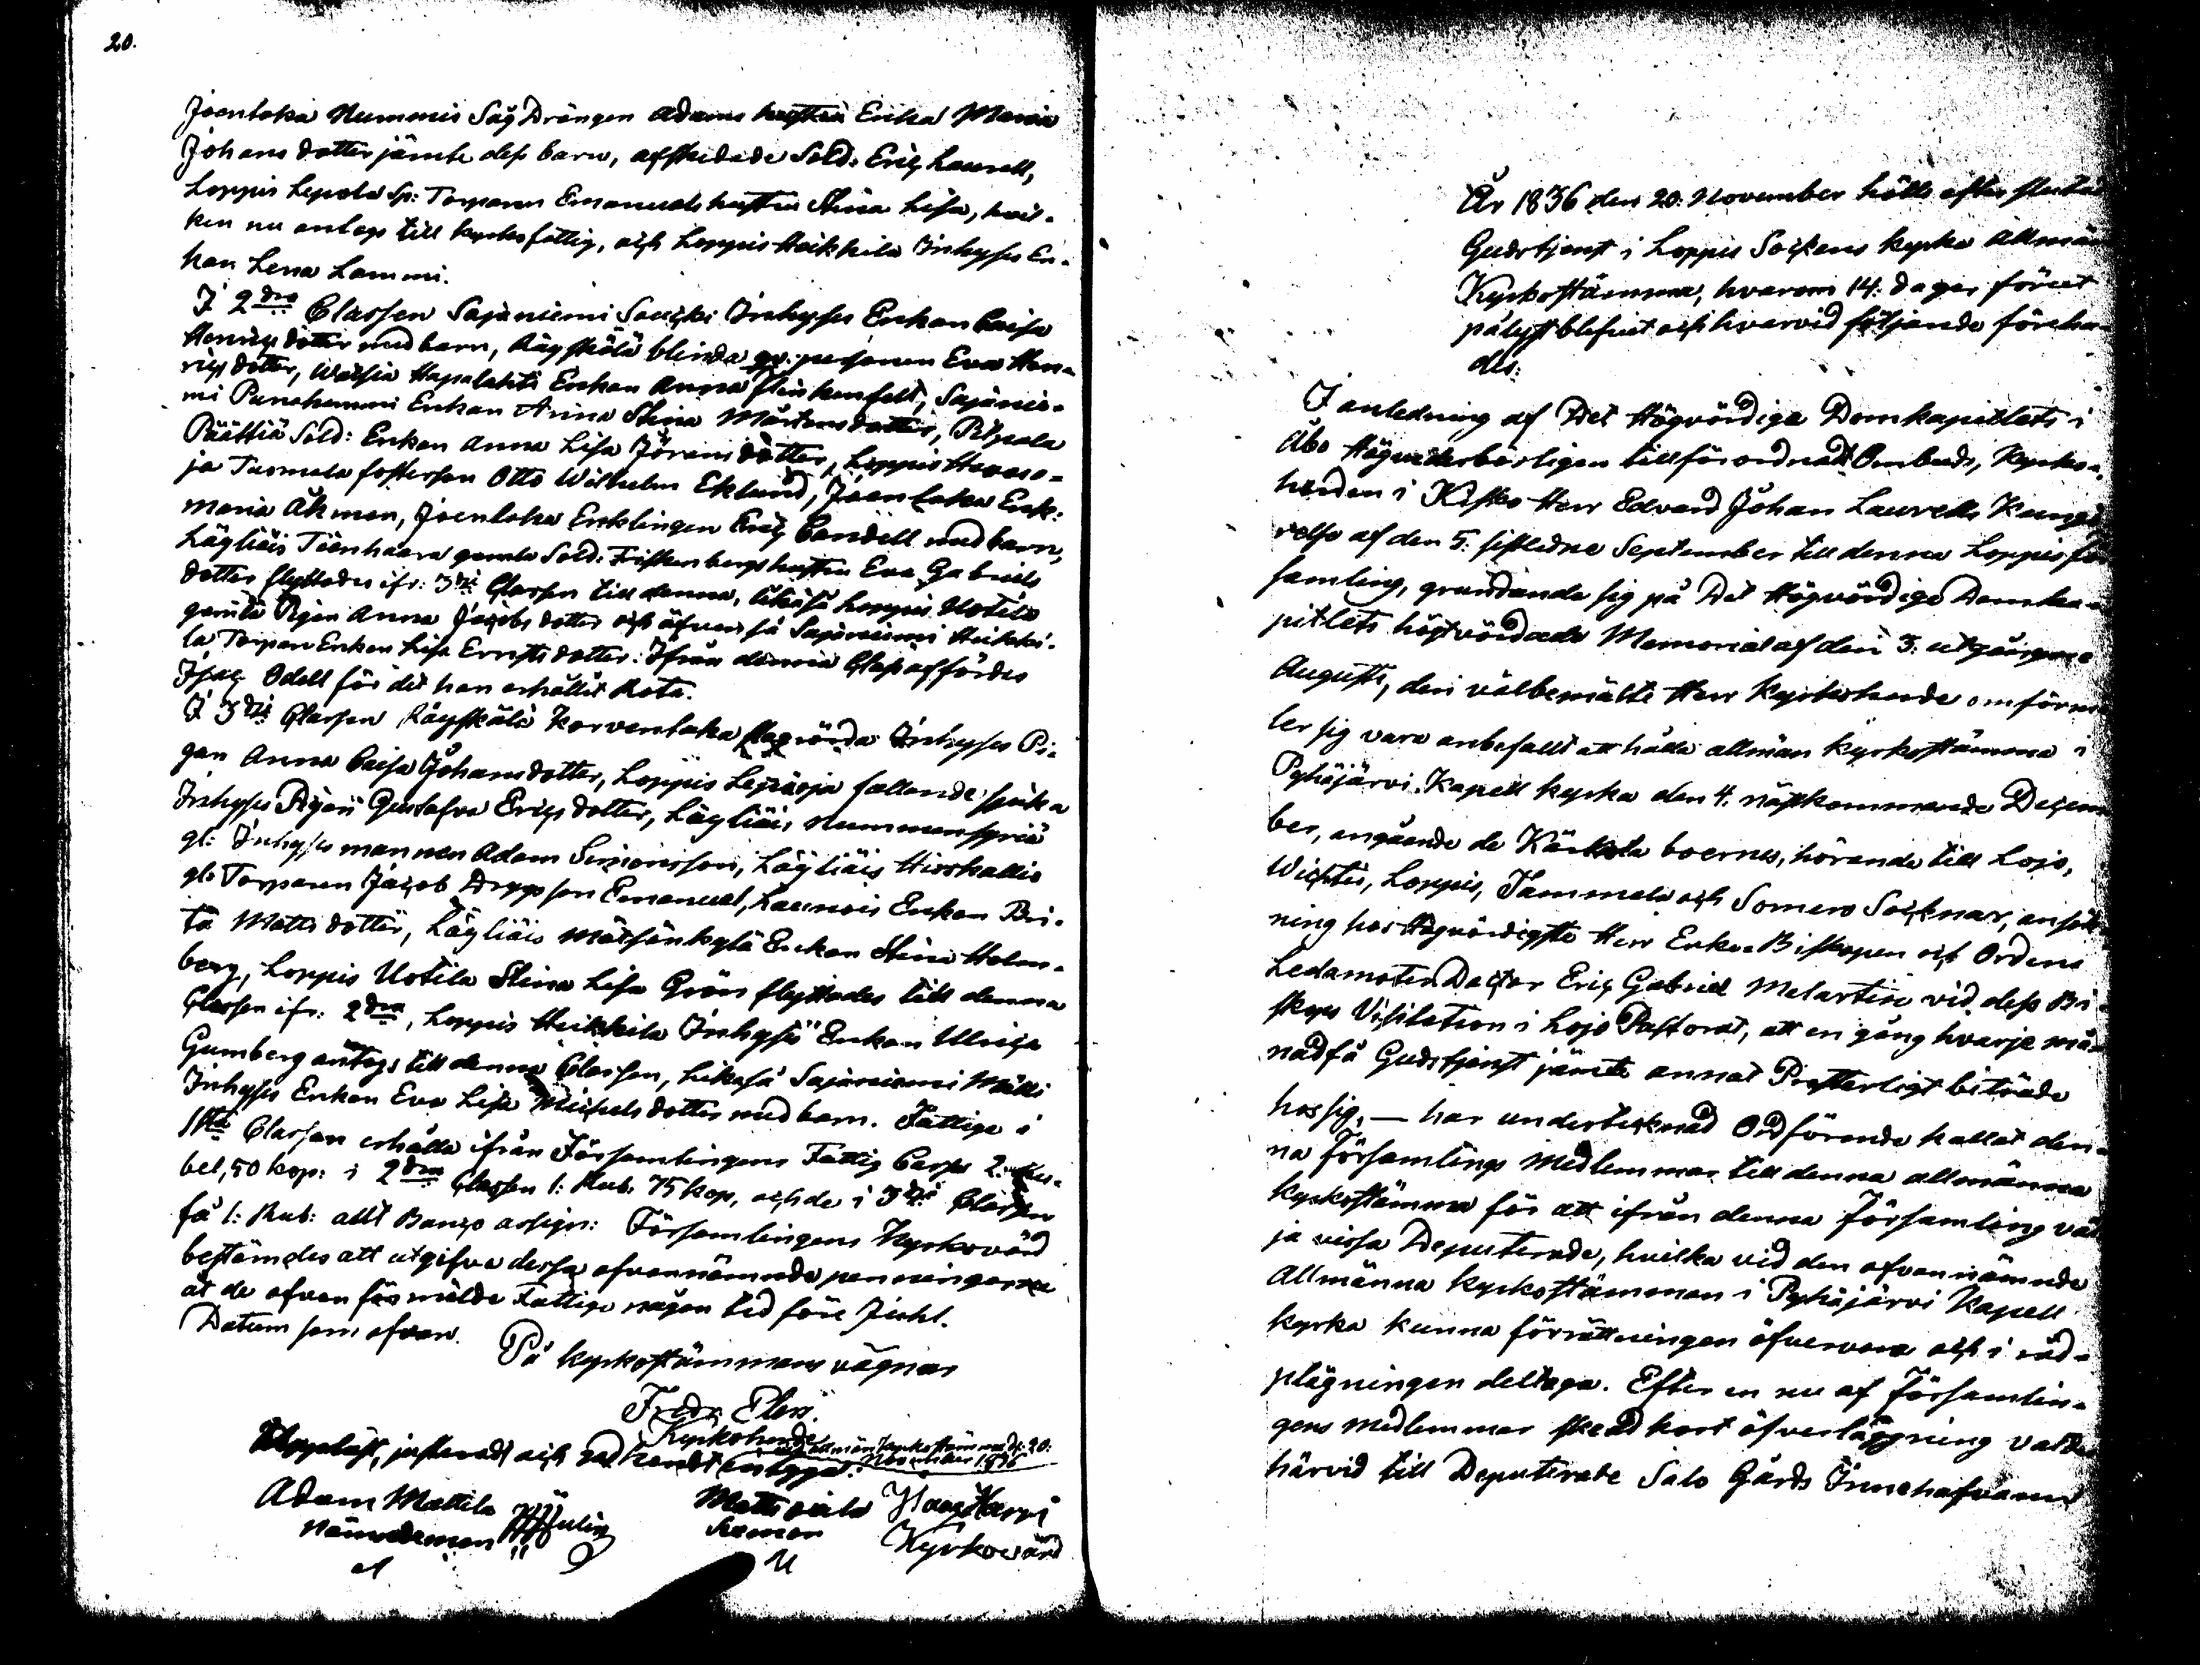 20.
Joenloka Nummis Såg Drängen Adams hustru Erika Maria
Johans dotter jämte dess barn, afskedade Sold: Eriç Laurell,
Loppis Lepola Sp: Torparen Emanuels hustru Stina Lisa, hvil-
ken nu antogs till kyrkofattig, och Loppis Heikkila Inhyses En-
kan Lena Lammi.
I 2dra Classen Sajaniemi Inhyses Enkan Caisa
Henriçs dotter med barn, Räyskälä blinda qv: personen Eva Hen-
riçs dotter, Hapalahti Enkan Anna Flinkenfelt, Sajanie-
mi Punakammi Enkan Anna Stina Mårtens dotter, Pilpala
Päättiä Sold: Enkan Anna Lisa Jörans dotter, Loppis
ja Tuomela fosterson Otto Wilhelm Eklund, Joenloka Enk:
Maria Åkman, Joenloka Enklingen Eriç Candell med barn,
Läyliäis Töenhaara gamla Sold: Friskenbergs hustru Eva Gabriels
dotter flyttades ifr: 3dje Classen till denna, likaså Loppis Uotila
gamla Pigan Anna Jacobs dotter och äfven så Sajaniemi Heikki-
la Torpare Enkan Lisa Ernsts dotter: Ifrån denna Class affördes
Isaç Odell för det han erhållit Rota.
I 3dje Classen Räyskälä Korvenloka Inhyses Pi-
gan Anna Caisa Johansdotter, Loppis fallande sjuka
Inhyses Pigan Gustafva Eriçs dotter, Läyliäis Nummensyrjä
gl: Inhyses mannen Adam Simonsson, Läyliäis Hirskallio
gl: Torparen Jacob Emanuel, Launois Enkan Bri-
ta Matts dotter, Läyliäis Märsänkylä Enkan Stina Holm-
berg, Loppis Uotila Stina Lisa Grön flyttades till denna
Classen ifr: 2dra, Loppis Heikkila Inhyses Enkan Ulriça
Gumberg antogs till denna Classen, Likaså Sajaniemi Mälli
Inhyses Enkan Eva Lisa Michels dotter med barn. Fattige i
1sta Classen erhålla ifrån Församlingens Fattig Cassa 2: Ru-
bel, 50 kop: i 2dra Classen 1: Rub. 75 kop, och de i 3dje Classen
få 1: Rub: allt Banço assign: Församlingens Kyrkovärd
bestämdes att utgifva dessa ofvannämnde penningarne
åt de ofvan förmälde Fattige någon tid före Juhl.
Datum som ofvan.
På kyrkostämmans vägnar
Fredr Elers.
Kyrkoherde
Uppläst, justeradt och godkändt
allmän kyrkostämma d. 20: November 1836
Adam Mattila
Nämndeman
Matts
Isaaç Harvi
Kyrkovärd
År 1836 den 20. November hölls efter slutad
Gudstjenst i Loppis Sockens kyrka Allmän
Kyrkostämma, hvarom 14: dagar förut
pålyst blifvit och hvarvid följande föreha-
des:
I anledning af Det Högvördiga Domkapitlets i
Åbo tillförordnade Ombuds, Kyrko-
herden i Kisko Herr Edvard Johan Laurells Kungö
relse af den 5: sistledne September till denna Loppis för
samling, grundande sig på Det Högvördige Domka-
pitlets högtvördade Memorial af den 3: utgångne
Augusti, deri välbemälte Herr Kyrkoherde omförmä
ler sig vara anbefalld att hålla allmän kyrkostämma i
Pyhäjärvi Kapell kyrka den 4. nästkommande Decem
ber, angående de Kärkola boernes, hörande till Lojo,
Wichtis, Loppis, Tammela och Somero Socknar, ansök
ning hos Högvördigste Herr Erke-Biskopen och Ordens
Ledamoten Doctor Eriç Gabriel Melartin vid dess Bi-
skops Visitation i Lojo Pastorat, att en gång hvarje må-
nad få Gudstjenst jämte annat Presterligt biträde
hos sig, — har undertecknad Ordförande kallat den-
na Församlings Medlemmar till denna allmänna
kyrkostämma för att ifrån denna Församling väl
ja vissa Deputerade, hvilka vid den ofvannämnde
Allmänna kyrkostämman i Pyhäjärvi Kapell
kyrka kunna förrättningen öfvervara och i råd-
plägningen deltaga. Efter en nu af Församlin-
gens medlemmar skedd kort öfverläggning valdes
härvid till Deputerade Salo Gårds Innehafvaren